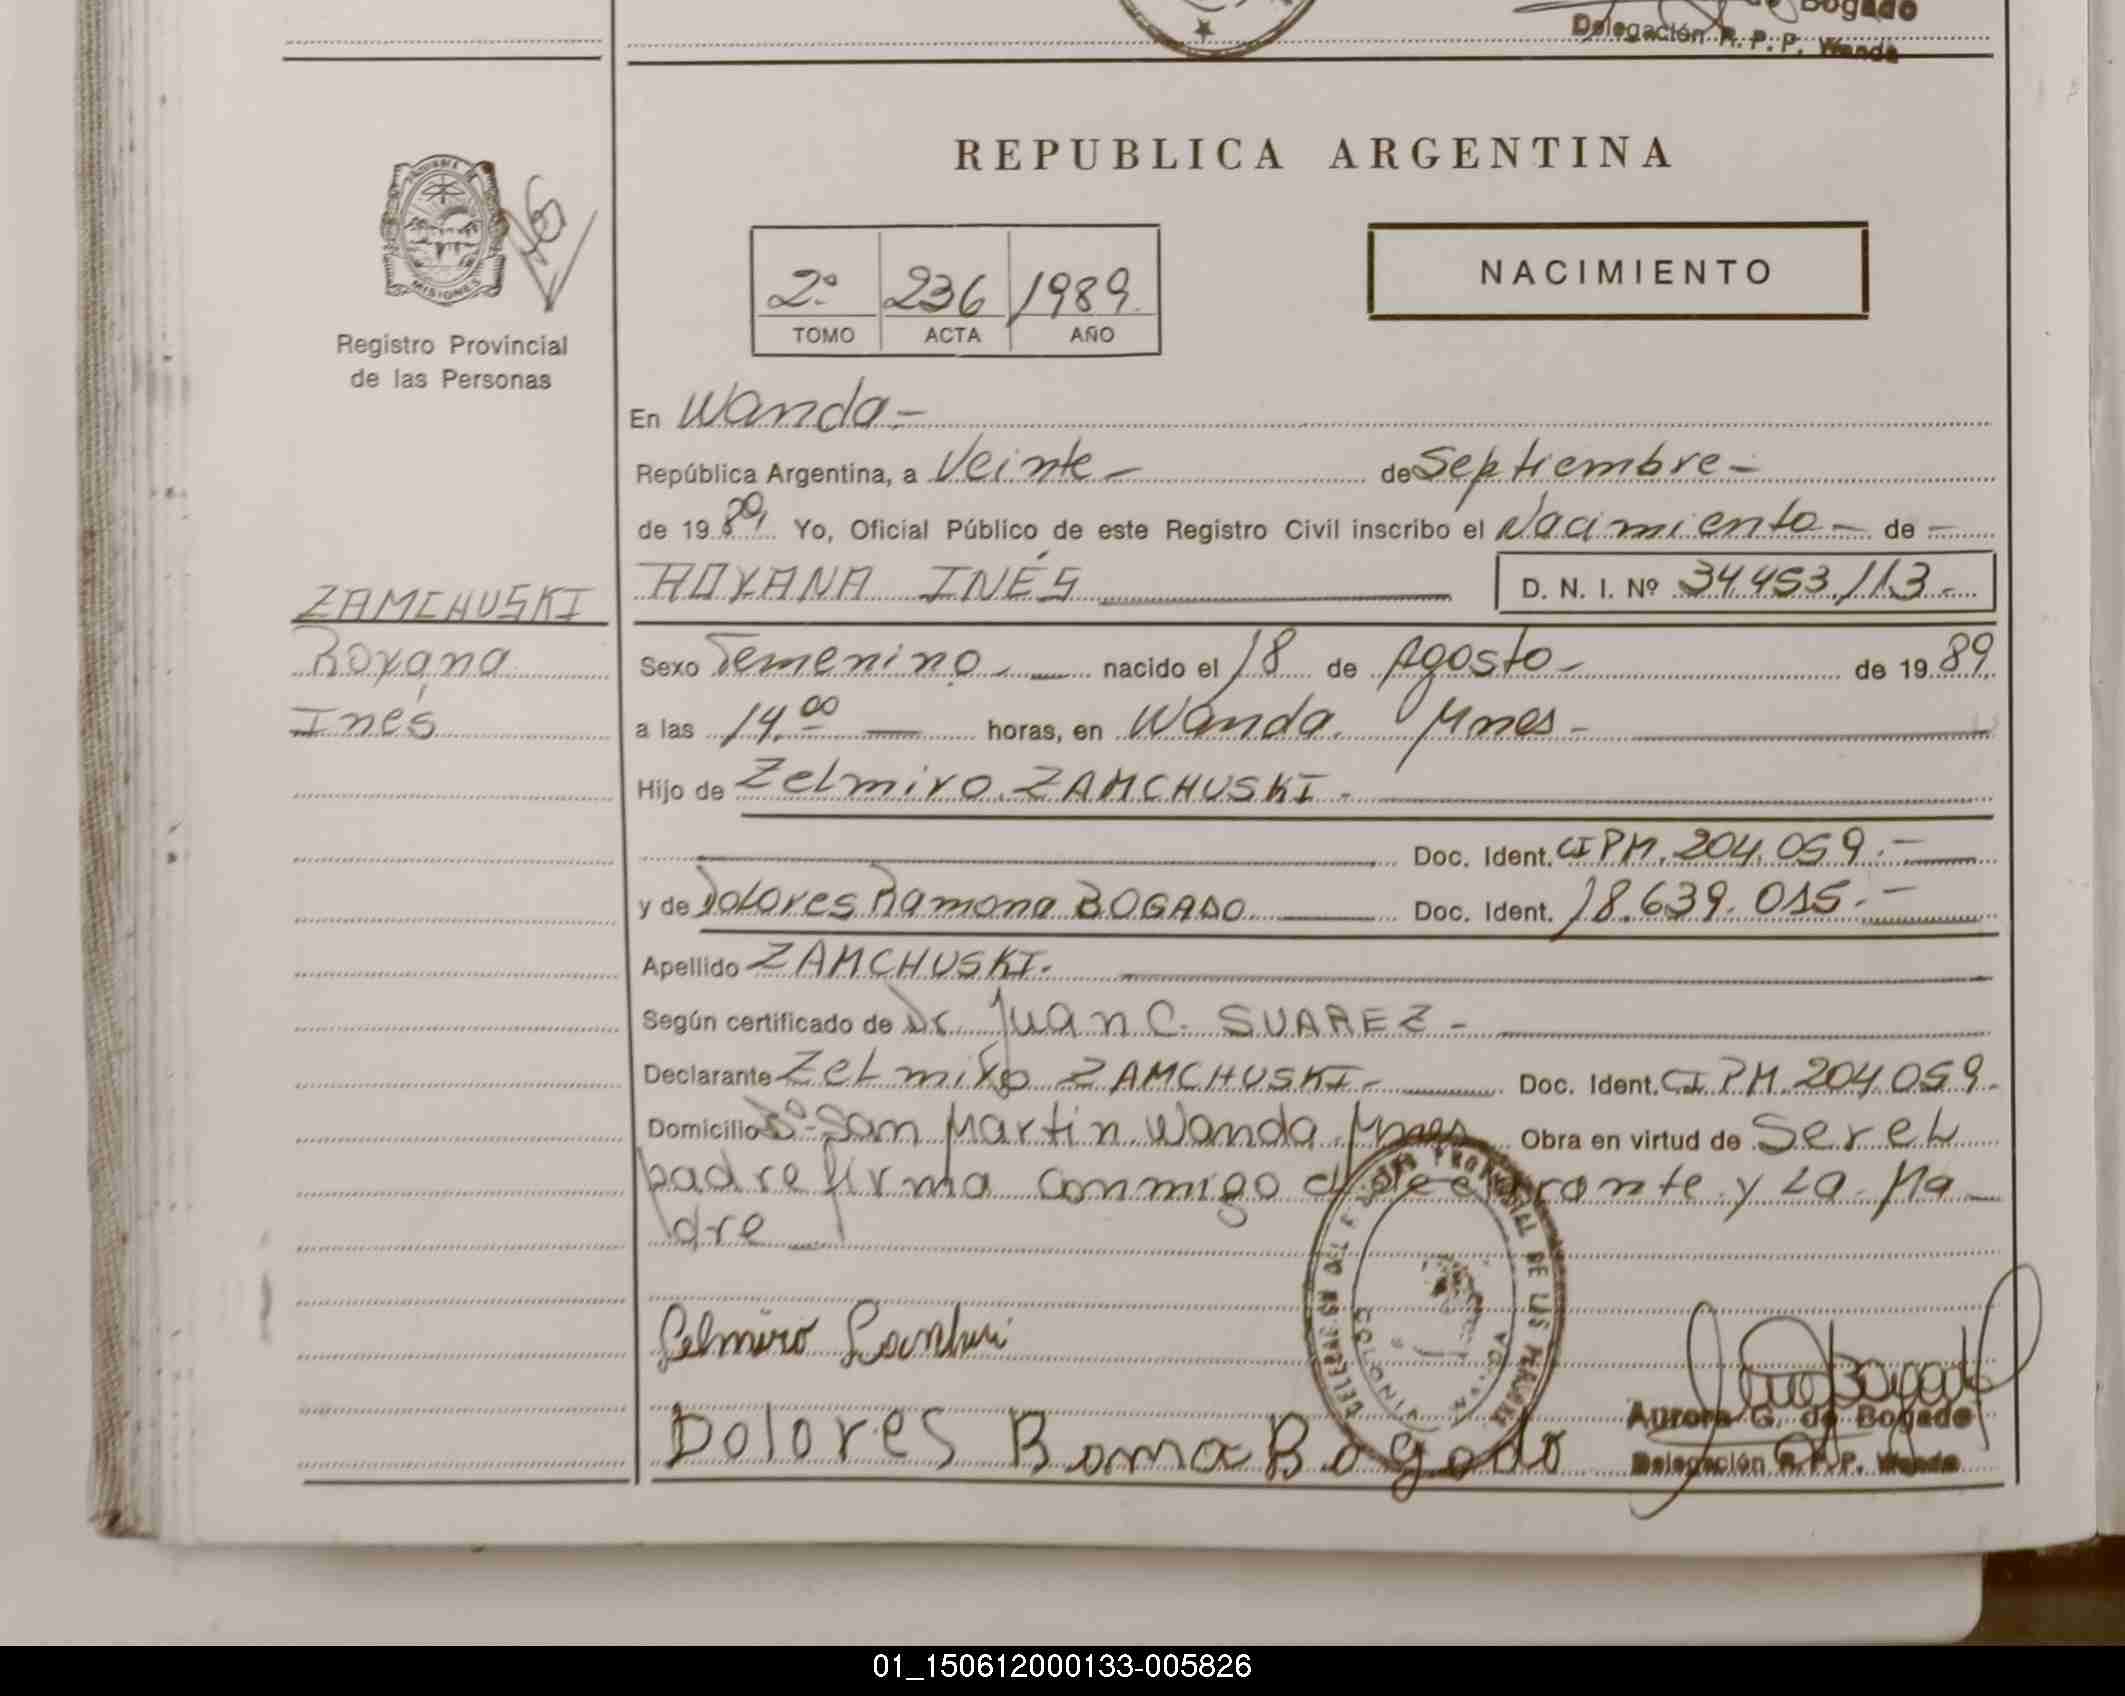 Bogado
Delegación R. P. P. Wanda
REPUBLICA ARGENTINA
MISIONES
Registro Provincial
de las Personas
2º 236 1989.
TOMO ACTA AÑO
NACIMIENTO
En Wanda-
República Argentina, a Veinte - de Septiembre -
de 19 89 Yo, Oficial Público de este Registro Civil inscribo el Nacimiento - de -
ROXANA INÉS D. N. I. Nº 34.453.113.-
ZAMCHUSKI
Roxana
Inés
Sexo Femenino.- nacido el 18 de Agosto - de 19 89.
a las 14.00 horas, en Wanda. Mnes -
Hijo de Zelmiro ZAMCHUSKI.-
Doc. Ident. CIPM. 204.059.-
y de Dolores Ramona BOGADO Doc. Ident. 18.639.015.-
Apellido ZAMCHUSKI.
Según certificado de Dr Juan C. SUAREZ -
Declarante Zelmiro ZAMCHUSKI.- Doc. Ident. CIPM. 204.059.
Domicilio Bº San Martin Wanda Mnes Obra en virtud de Ser el
padre firma conmigo el declarante y La Ma
dre
DE LAS PERSONAS
COLONIA WANDA
Selmiro
Dolores Roma Bogado
Aurora G. de Bogado
Delegación R. P. P. Wanda
01_150612000133-005826